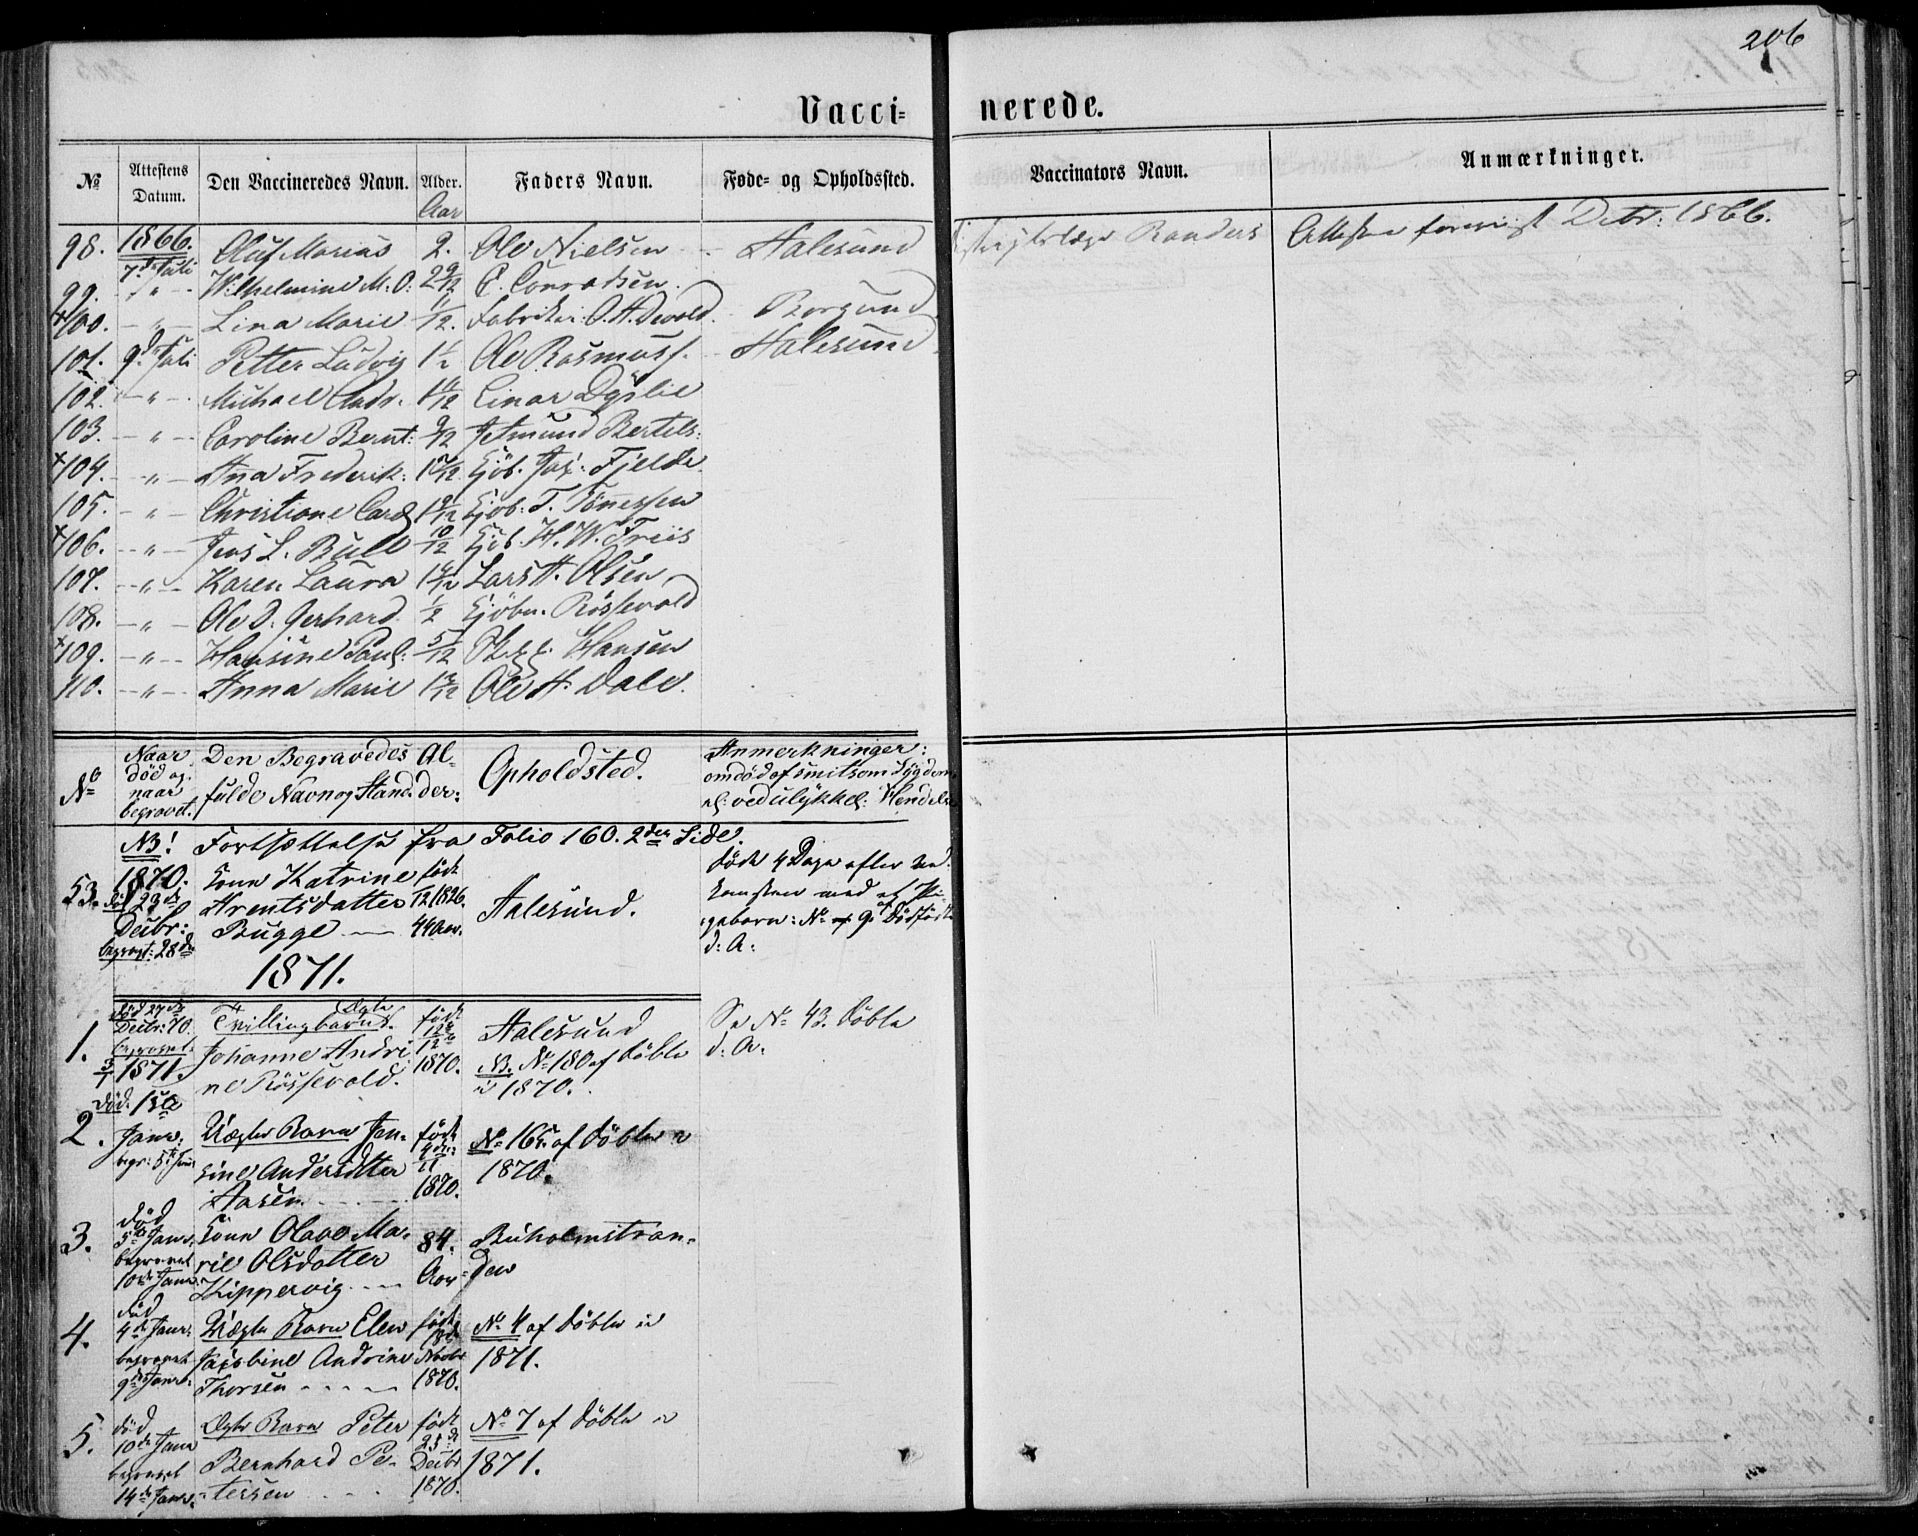 206
Vacci- nerede.
No Attestens Datum. Den Vaccineredes Navn. Alder. Faders Navn. Føde- og Opholdssted. Vaccinators Navn. Anmærkninger.
Aar
98. 1866. 7de Juli Oluf Marius 2. Ole Nielsen Aalesund Randers Dctr: 1866.
99. " Wilhelmine M. O: 2 9/12 C. Conradsen.
+100. " Lina Marie 11/12. Fabrikør O. A. Devold. Borgund
101. 9de Juli Petter Ludvig 1 1/2 Ole Rasmuss. Aalesund
102. " Michael Andr. Einar Dysvie
103. " Caroline Bernt: 9/12 Jetmund Bertels:
+104. " Ana Frederik: Kjøb. Fjelde
105. " Christiane Carol Kjøb: T. Tönnessen
+106. " Jens L. Bull 10/12 Kjøb. H. W. Friis
107. " Karen Laura Lars A. Olsen
108. " Ole D. Gerhard 1/2 Kjøbm. Rössevold
+109. " Hansine Paul: 5/12 Hansen
110. " Anna Marie Ole A. Dale.
No Naar død og naar begravet. Den Begravedes fulde Navn og Stand. Alder: Opholdsted. Anmerkninger: om död af smitsom Sygdom el: ved ulykkel: Hendelse
NB! Fortsættelse fra Folio 160. 2den Side.
53. 1870. död 23de Decbr: begravet: 28de
Kone Katrine
Arentsdatter
Bugge
født
/12 1826.
44 Aar.
Aalesund.
døde 4 Dage efter Ned-
komsten med et Pi-
gebarn: No 9 af Dødfødte
d: A:
1871.
1. død 27de
Decbr: 70.
begravet
3/1 1871.
Ægte
Tvillingbarn.
Johanne Andri
ne Rössevold.
født
12/12
1870.
Aalesund
NB. No 180 af Döbte
i 1870.
Se No 43. Döbte
d: A:
2. død. 1ste
Janr:
begr: 5te Janr
Uægte Barn Jan-
sine Andersdatter
Aasen
født
9de
11
1870.
No 165 af Döbte i
1870.
3. død
5te Janr.
begravet
10de Janr.
Kone Olave Ma-
rie Olsdatter
Skippervig
84.
Aar
Buholmstran-
den
4. død
4de Janr:
begravet
9de Janr:
Uægte Barn Elen
Jacobine Andrine
Thorsen
født
18de
Novbr
1870.
No 4 af Döbte i
1871.
5. død
10de Janr
begravet
14de Janr.
Ægte Barn Peter
Bernhard Pe-
tersen
født
25de
Decbr
1870.
No 7 af Döbte i
1871.